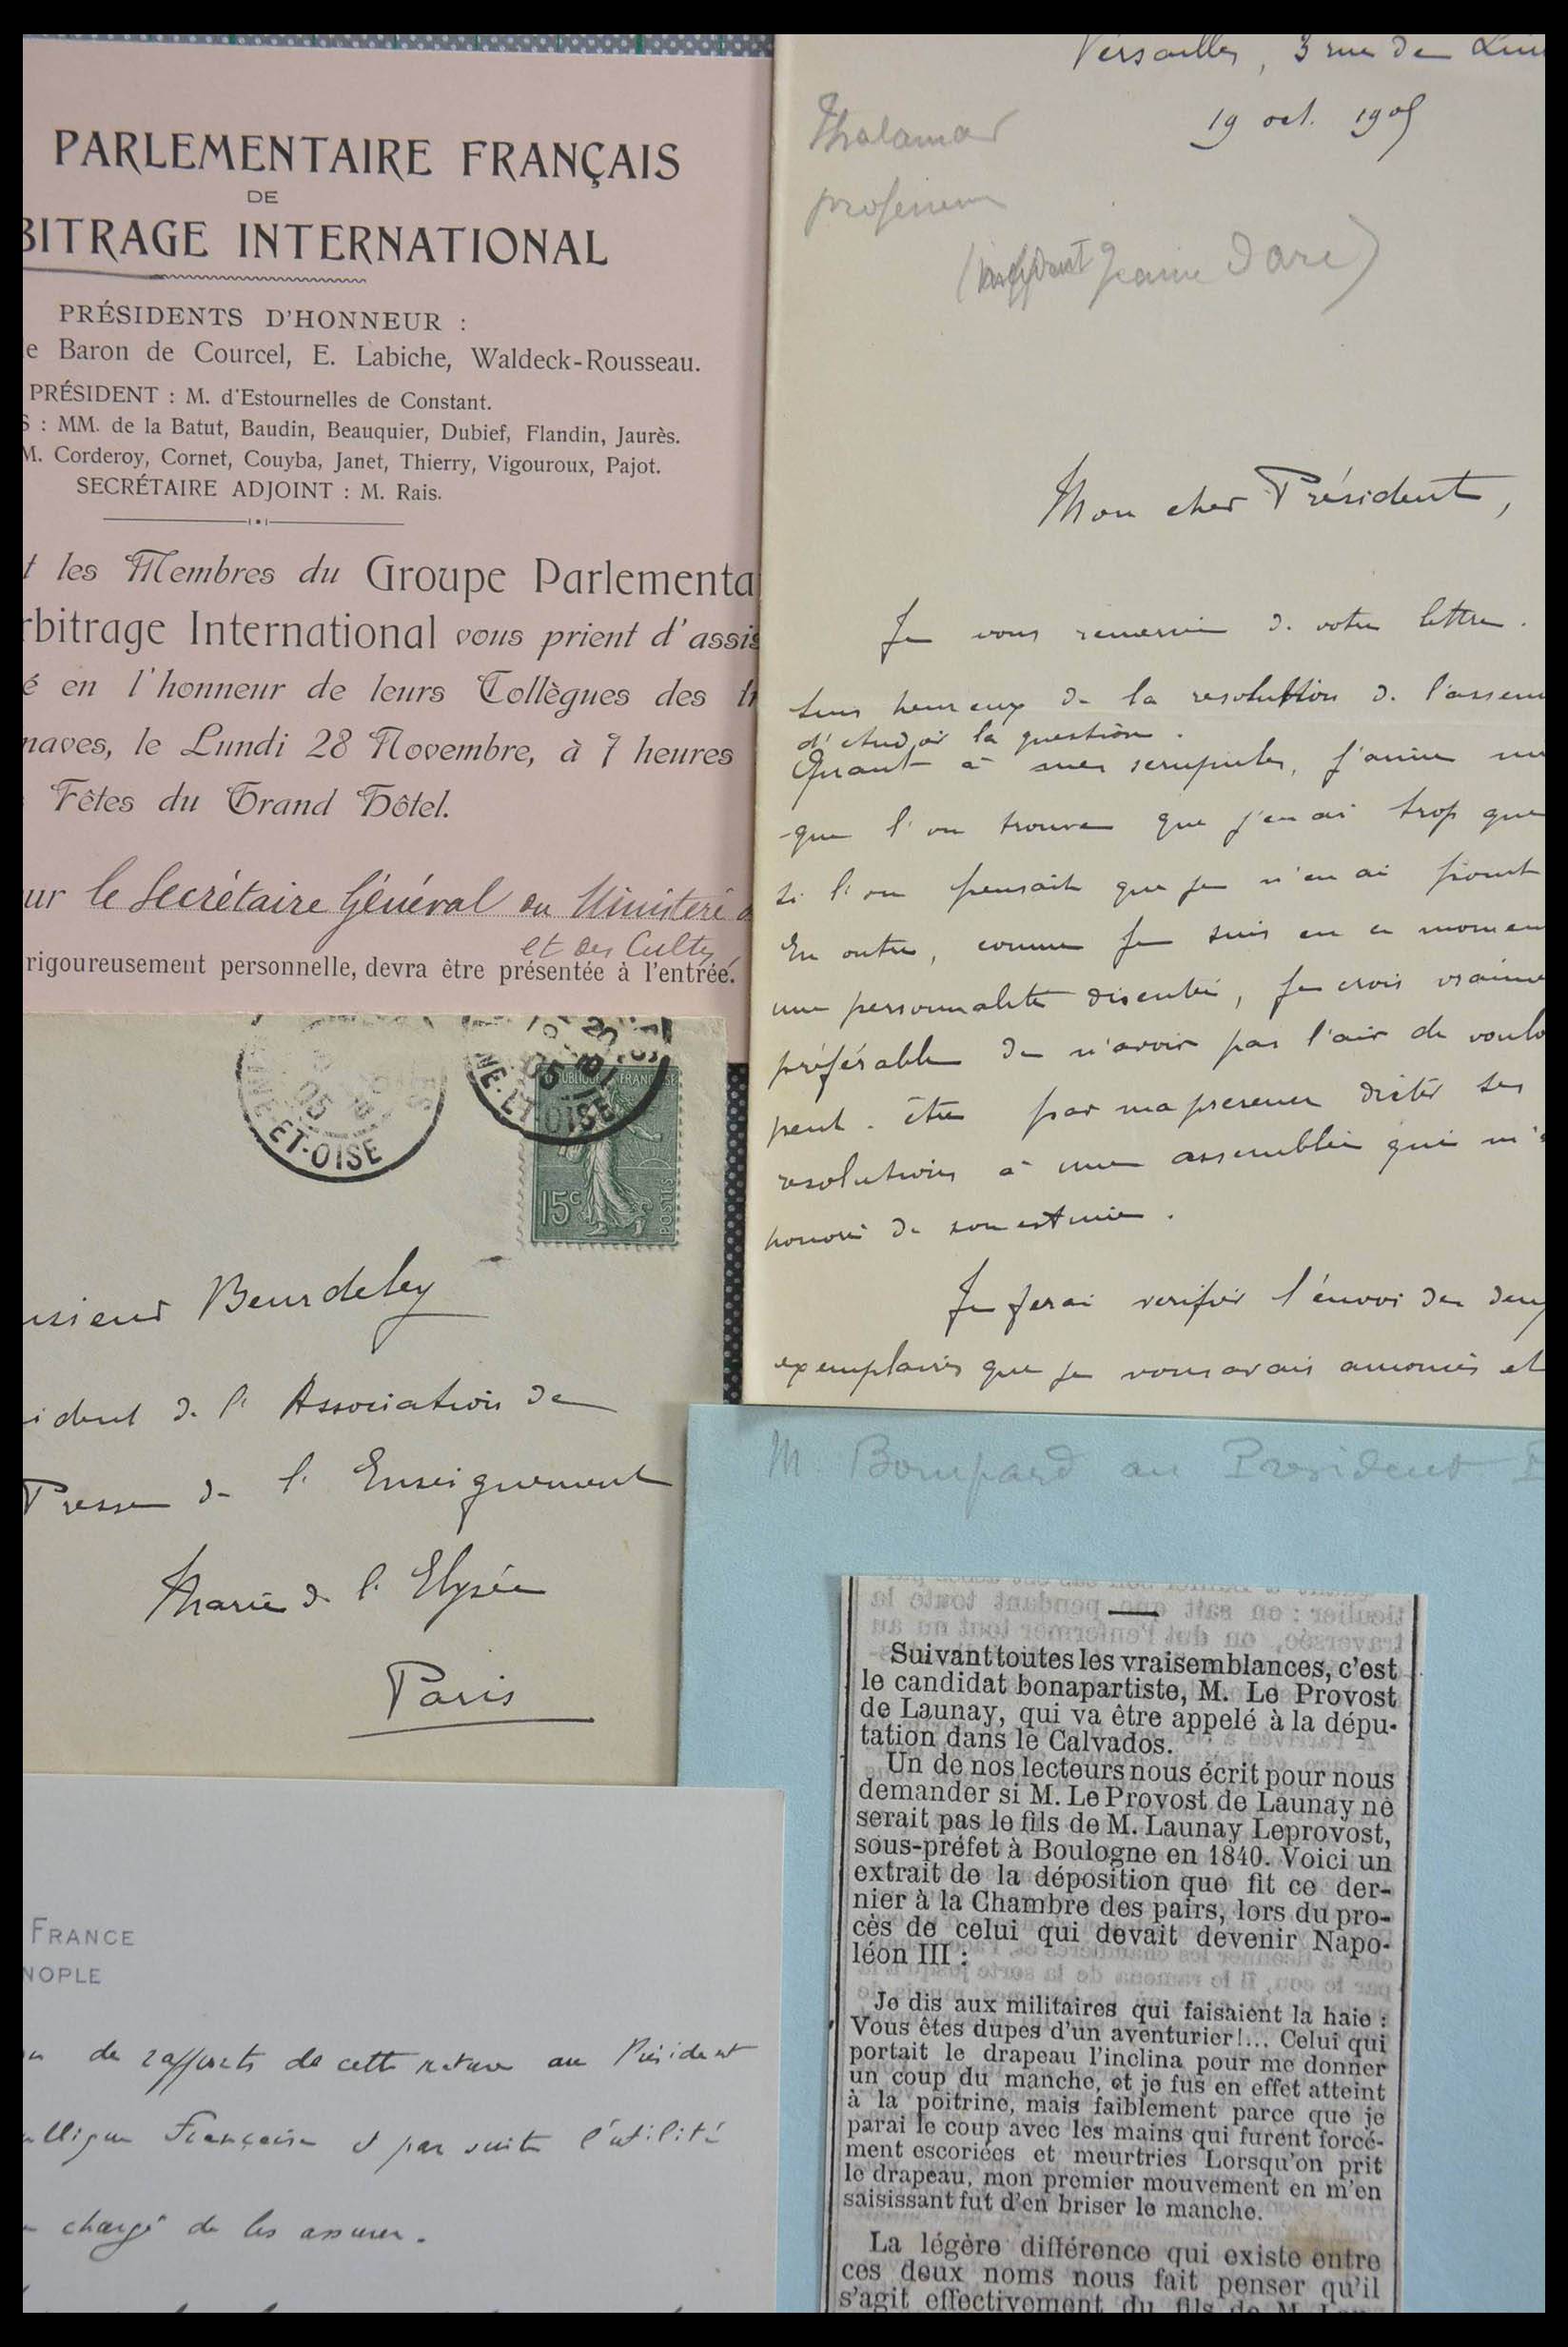 PARLEMENTAIRE FRANÇAIS
DE
BITRAGE INTERNATIONAL
PRÉSIDENTS D'HONNEUR :
e Baron de Courcel, E. Labiche, Waldeck-Rousseau.
PRÉSIDENT : M. d'Estournelles de Constant.
S : MM. de la Batut, Baudin, Beauquier, Dubief, Flandin, Jaurès.
M. Corderoy, Cornet, Couyba, Janet, Thierry, Vigouroux, Pajot.
SECRÉTAIRE ADJOINT : M. Rais.
t les Membres du Groupe Parlementa
rbitrage International vous prient d'assis
é en l'honneur de leurs Collègues des
naves, le Lundi 28 Novembre, à 7 heures
Fêtes du Grand Hôtel.
ur le Secrétaire Général du Ministère
et des Cultes
rigoureusement personnelle, devra être présentée à l'entrée.
Versailles, 3 rue de
19 oct. 1905
Thalamas
professeur
(insultant Jeanne Darc)
Mon cher Président,
Je vous remercie de votre lettre.
suis heureux de la resolution de l'assem
d'étudier la question.
Quant à mes scrupules, j'aime m
que l'on trouve que j'en ai trop que
si l'on pensait que je n'en ai point
En outre, comme je suis en ce momen
une personnalité discutée, je crois vraime
préférable de n'avoir pas l'air de voulo
peut-être par ma presence dicter ses
resolutions à une assemblée qui m'
honoré de son estime.
Je ferai verifier l'envoi de deux
exemplaires que je vous avais annoncés et
NE-ET-OISE
05
NE-ET-OISE
05
RÉPUBLIQUE FRANÇAISE
15c
POSTES
nsieur Beurdeley
ident de l'Association de
Presse de l'Enseignement
Mairie de l'Elysée
Paris
M Bompard au President
Suivant toutes les vraisemblances, c'est
le candidat bonapartiste, M. Le Provost
de Launay, qui va être appelé à la dépu-
tation dans le Calvados.
Un de nos lecteurs nous écrit pour nous
demander si M. Le Provost de Launay ne
serait pas le fils de M. Launay Leprovost,
sous-préfet à Boulogne en 1840. Voici un
extrait de la déposition que fit ce der-
nier à la Chambre des pairs, lors du pro-
cès de celui qui devait devenir Napo-
léon III :
Je dis aux militaires qui faisaient la haie :
Vous êtes dupes d'un aventurier!... Celui qui
portait le drapeau l'inclina pour me donner
un coup du manche, et je fus en effet atteint
à la poitrine, mais faiblement parce que je
parai le coup avec les mains qui furent forcé-
ment escoriées et meurtries Lorsqu'on prit
le drapeau, mon premier mouvement en m'en
saisissant fut d'en briser le manche.
La légère différence qui existe entre
ces deux noms nous fait penser qu'il
s'agit effectivement du fils de M. Lau
FRANCE
NOPLE
de rapports de cette nature au Président
ublique Française et par suite l'utilité
chargé de les assurer.